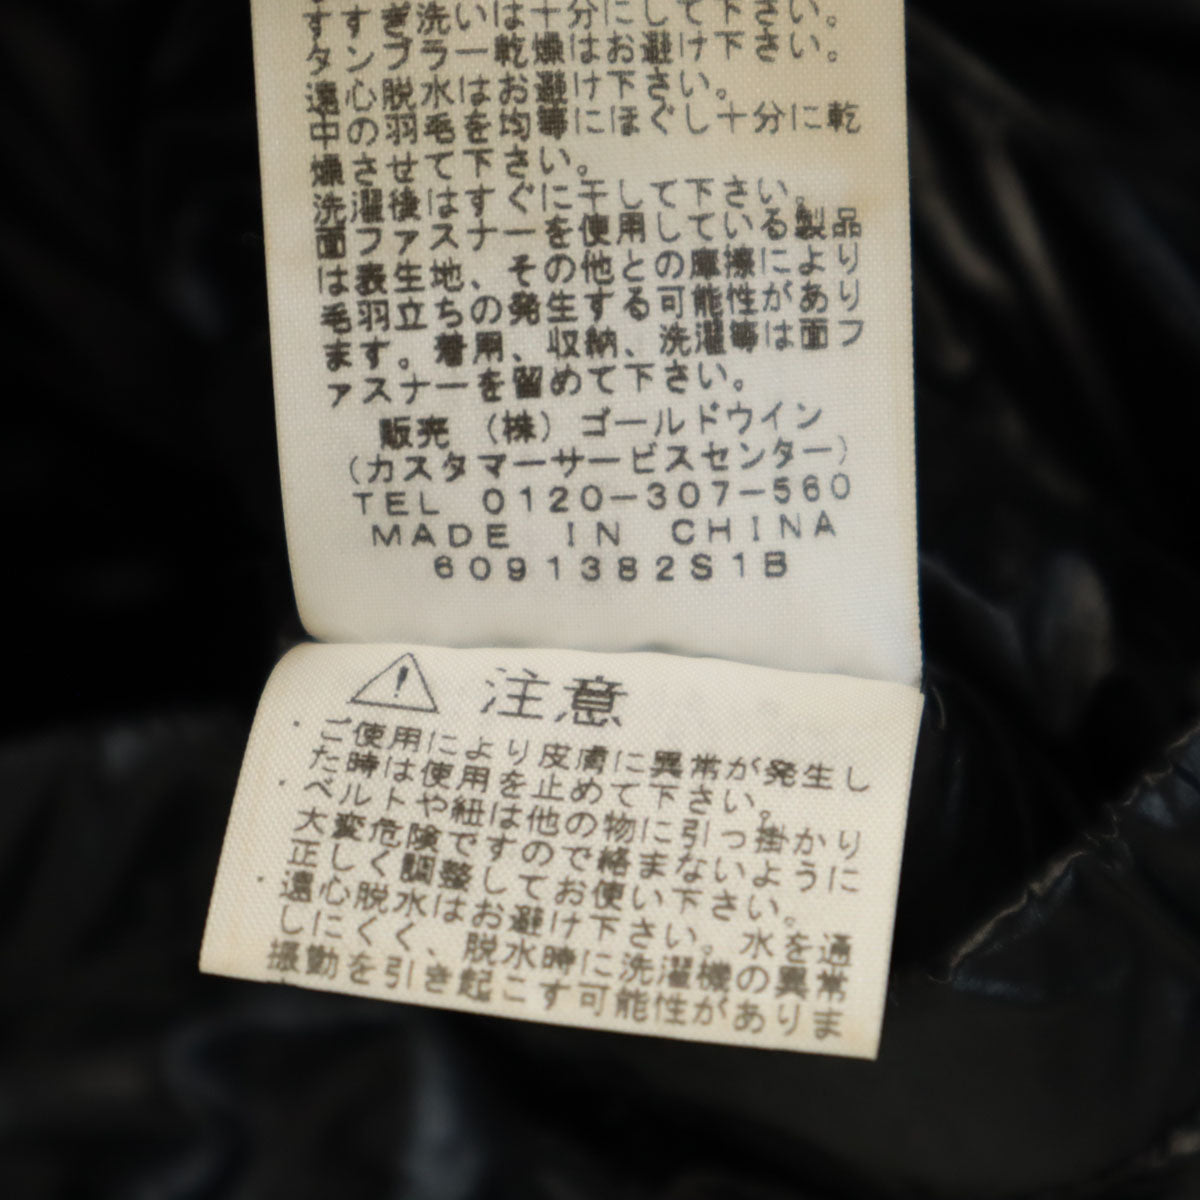 すすぎ洗いは十分にして下さい。
タンブラー乾燥はお避け下さい。
遠心脱水はお避け下さい。
中の羽毛を均等にほぐし十分に乾
燥させて下さい。
洗濯後はすぐに干して下さい。
面ファスナーを使用している製品
は表生地、その他との摩擦により
毛羽立ちの発生する可能性があり
ます。着用、収納、洗濯等は面フ
ァスナーを留めて下さい。
販売 (株) ゴールドウイン
(カスタマーサービスセンター)
TEL 0120-307-560
MADE IN CHINA
6091382S1B
注意
・ご使用により皮膚に異常が発生し
た時は使用を止めて下さい。
・ベルトや紐は他の物に引っ掛かり
大変危険ですので絡まないように
正しく調整してお使い下さい。
・遠心脱水はお避け下さい。水を通
しにくく、脱水時に洗濯機の異常
振動を引き起こす可能性がありま